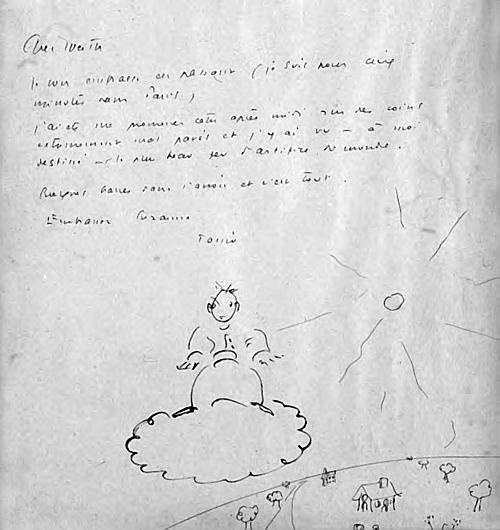 Cher Werth
Je vous embrasse en passant (je suis pour cinq
minutes dans Paris)
J'ai été me promener cette après midi sur des coins
mal pavés et j'y ai vu — à moi
destiné — le plus beau feu d'artifice du monde.
Quelques balles dans l'avion et c'est tout.
Embrassez Suzanne
Tonio